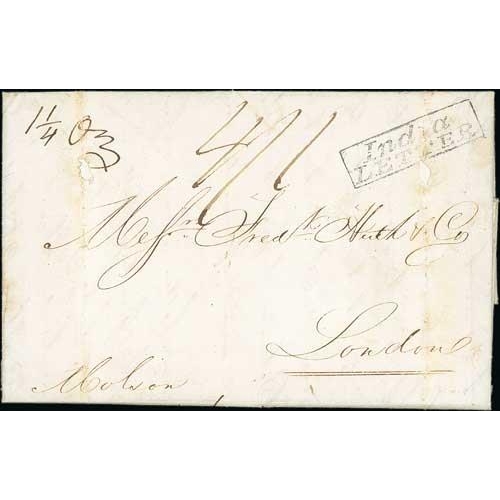 1 1/4 Oz
4/1
India
LETTER
Messrs. Fredk. Huth & Co
London
Molson